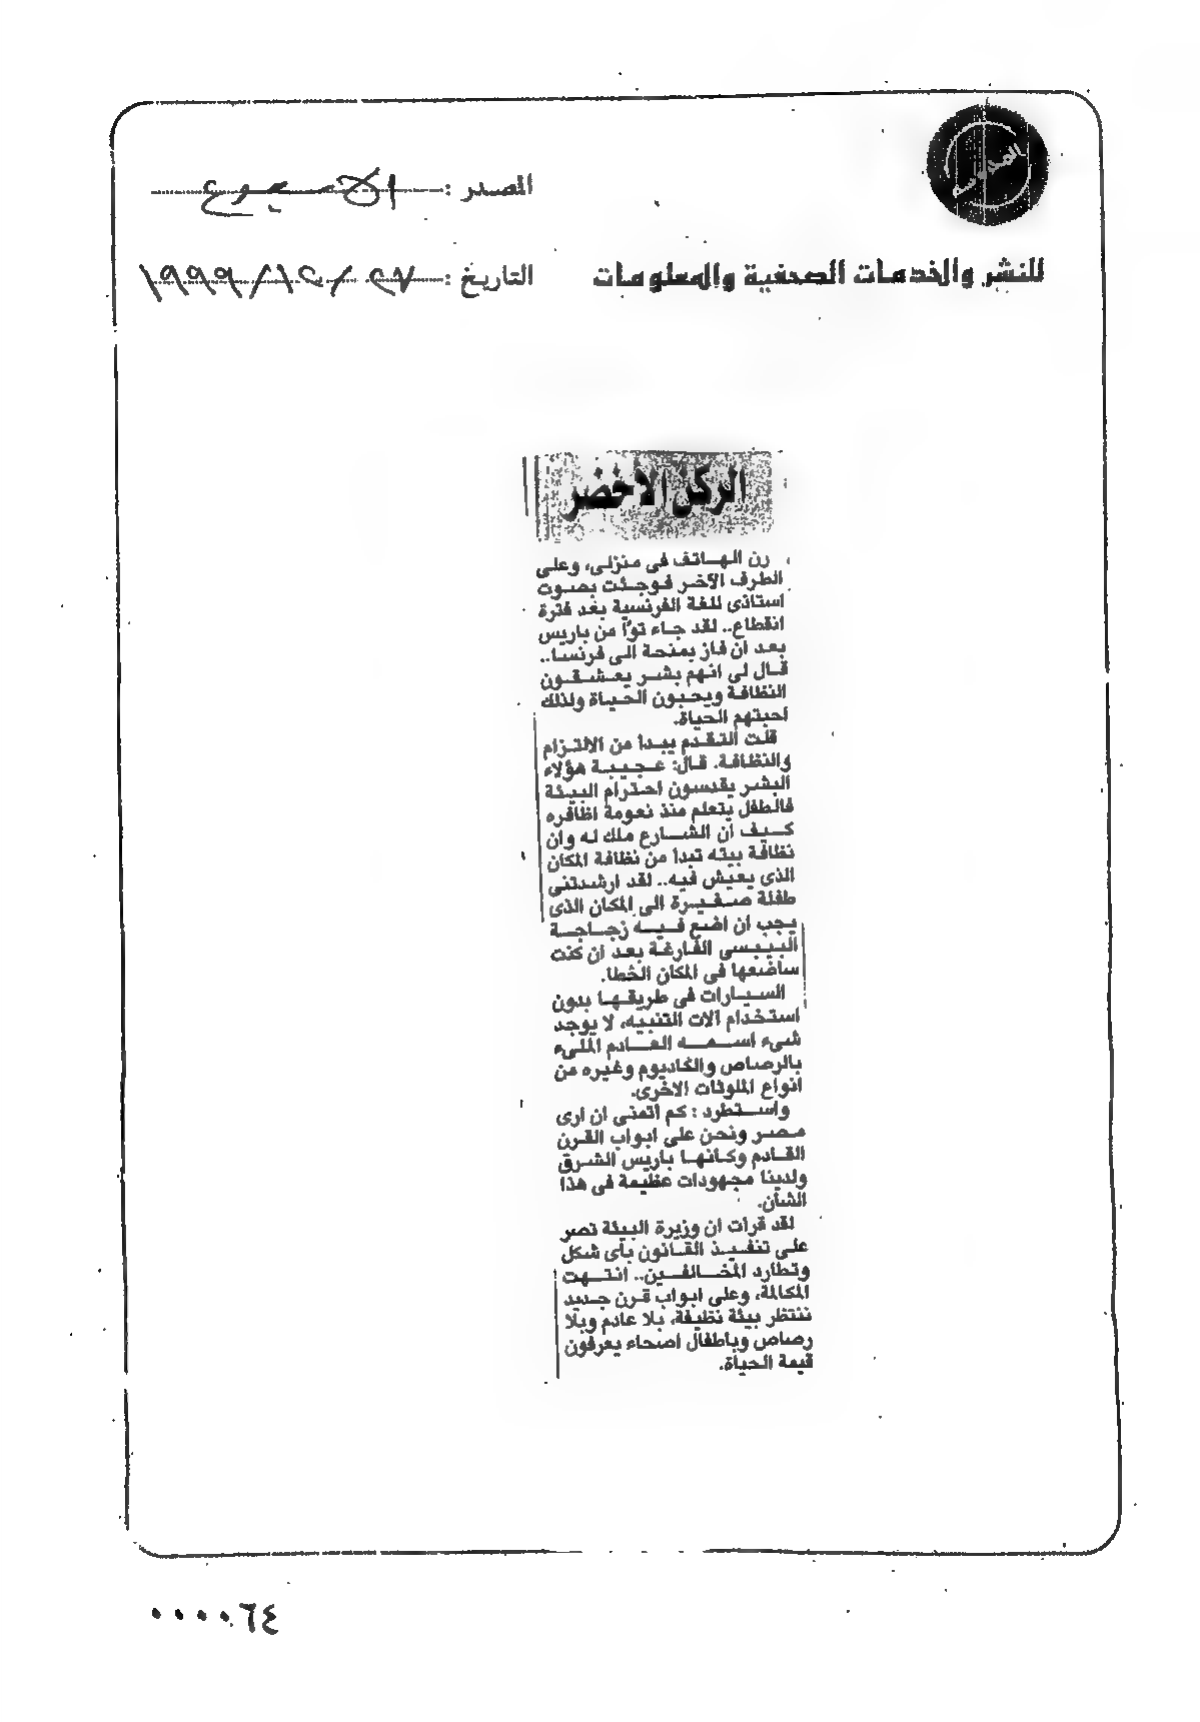 المصدر : الاسبوع
للنشر والخدمات الصحفية والمعلومات
التاريخ : ٢٧ / ١٢ / ١٩٩٩
الركن الاخضر
رن الهاتف فى منزلى، وعلى
الطرف الآخر فوجئت بصوت
استاذى للغة الفرنسية بعد فترة
انقطاع.. لقد جاء توا من باريس
بعد ان فاز بمنحة الى فرنسا..
قال لى انهم بشر يعشقون
النظافة ويحبون الحياة ولذلك
احبتهم الحياة.
قلت التقدم يبدأ من الالتزام
والنظافة. قال: عجيبة هؤلاء
البشر يقدسون احترام البيئة
فالطفل يتعلم منذ نعومة اظافره
كيف ان الشارع ملك له وان
نظافة بيته تبدأ من نظافة المكان
الذى يعيش فيه.. لقد ارشدتنى
طفلة صغيرة الى المكان الذى
يجب ان اضع فيه زجاجة
البيبسى الفارغة بعد ان كنت
سأضعها فى المكان الخطا.
السيارات فى طريقها بدون
استخدام آلات التنبيه، لا يوجد
شىء اسمه العادم الملىء
بالرصاص والكاديوم وغيره من
انواع الملوثات الاخرى.
واستطرد : كم اتمنى ان ارى
مصر ونحن على ابواب القرن
القادم وكأنها باريس الشرق
ولدينا مجهودات عظيمة فى هذا
الشأن.
لقد قرأت ان وزيرة البيئة تصر
على تنفيذ القانون بأى شكل
وتطارد المخالفين.. انتهت
المكالمة، وعلى ابواب قرن جديد
ننتظر بيئة نظيفة، بلا عادم وبلا
رصاص وبأطفال اصحاء يعرفون
قيمة الحياة.
٠٠٠٠٦٤